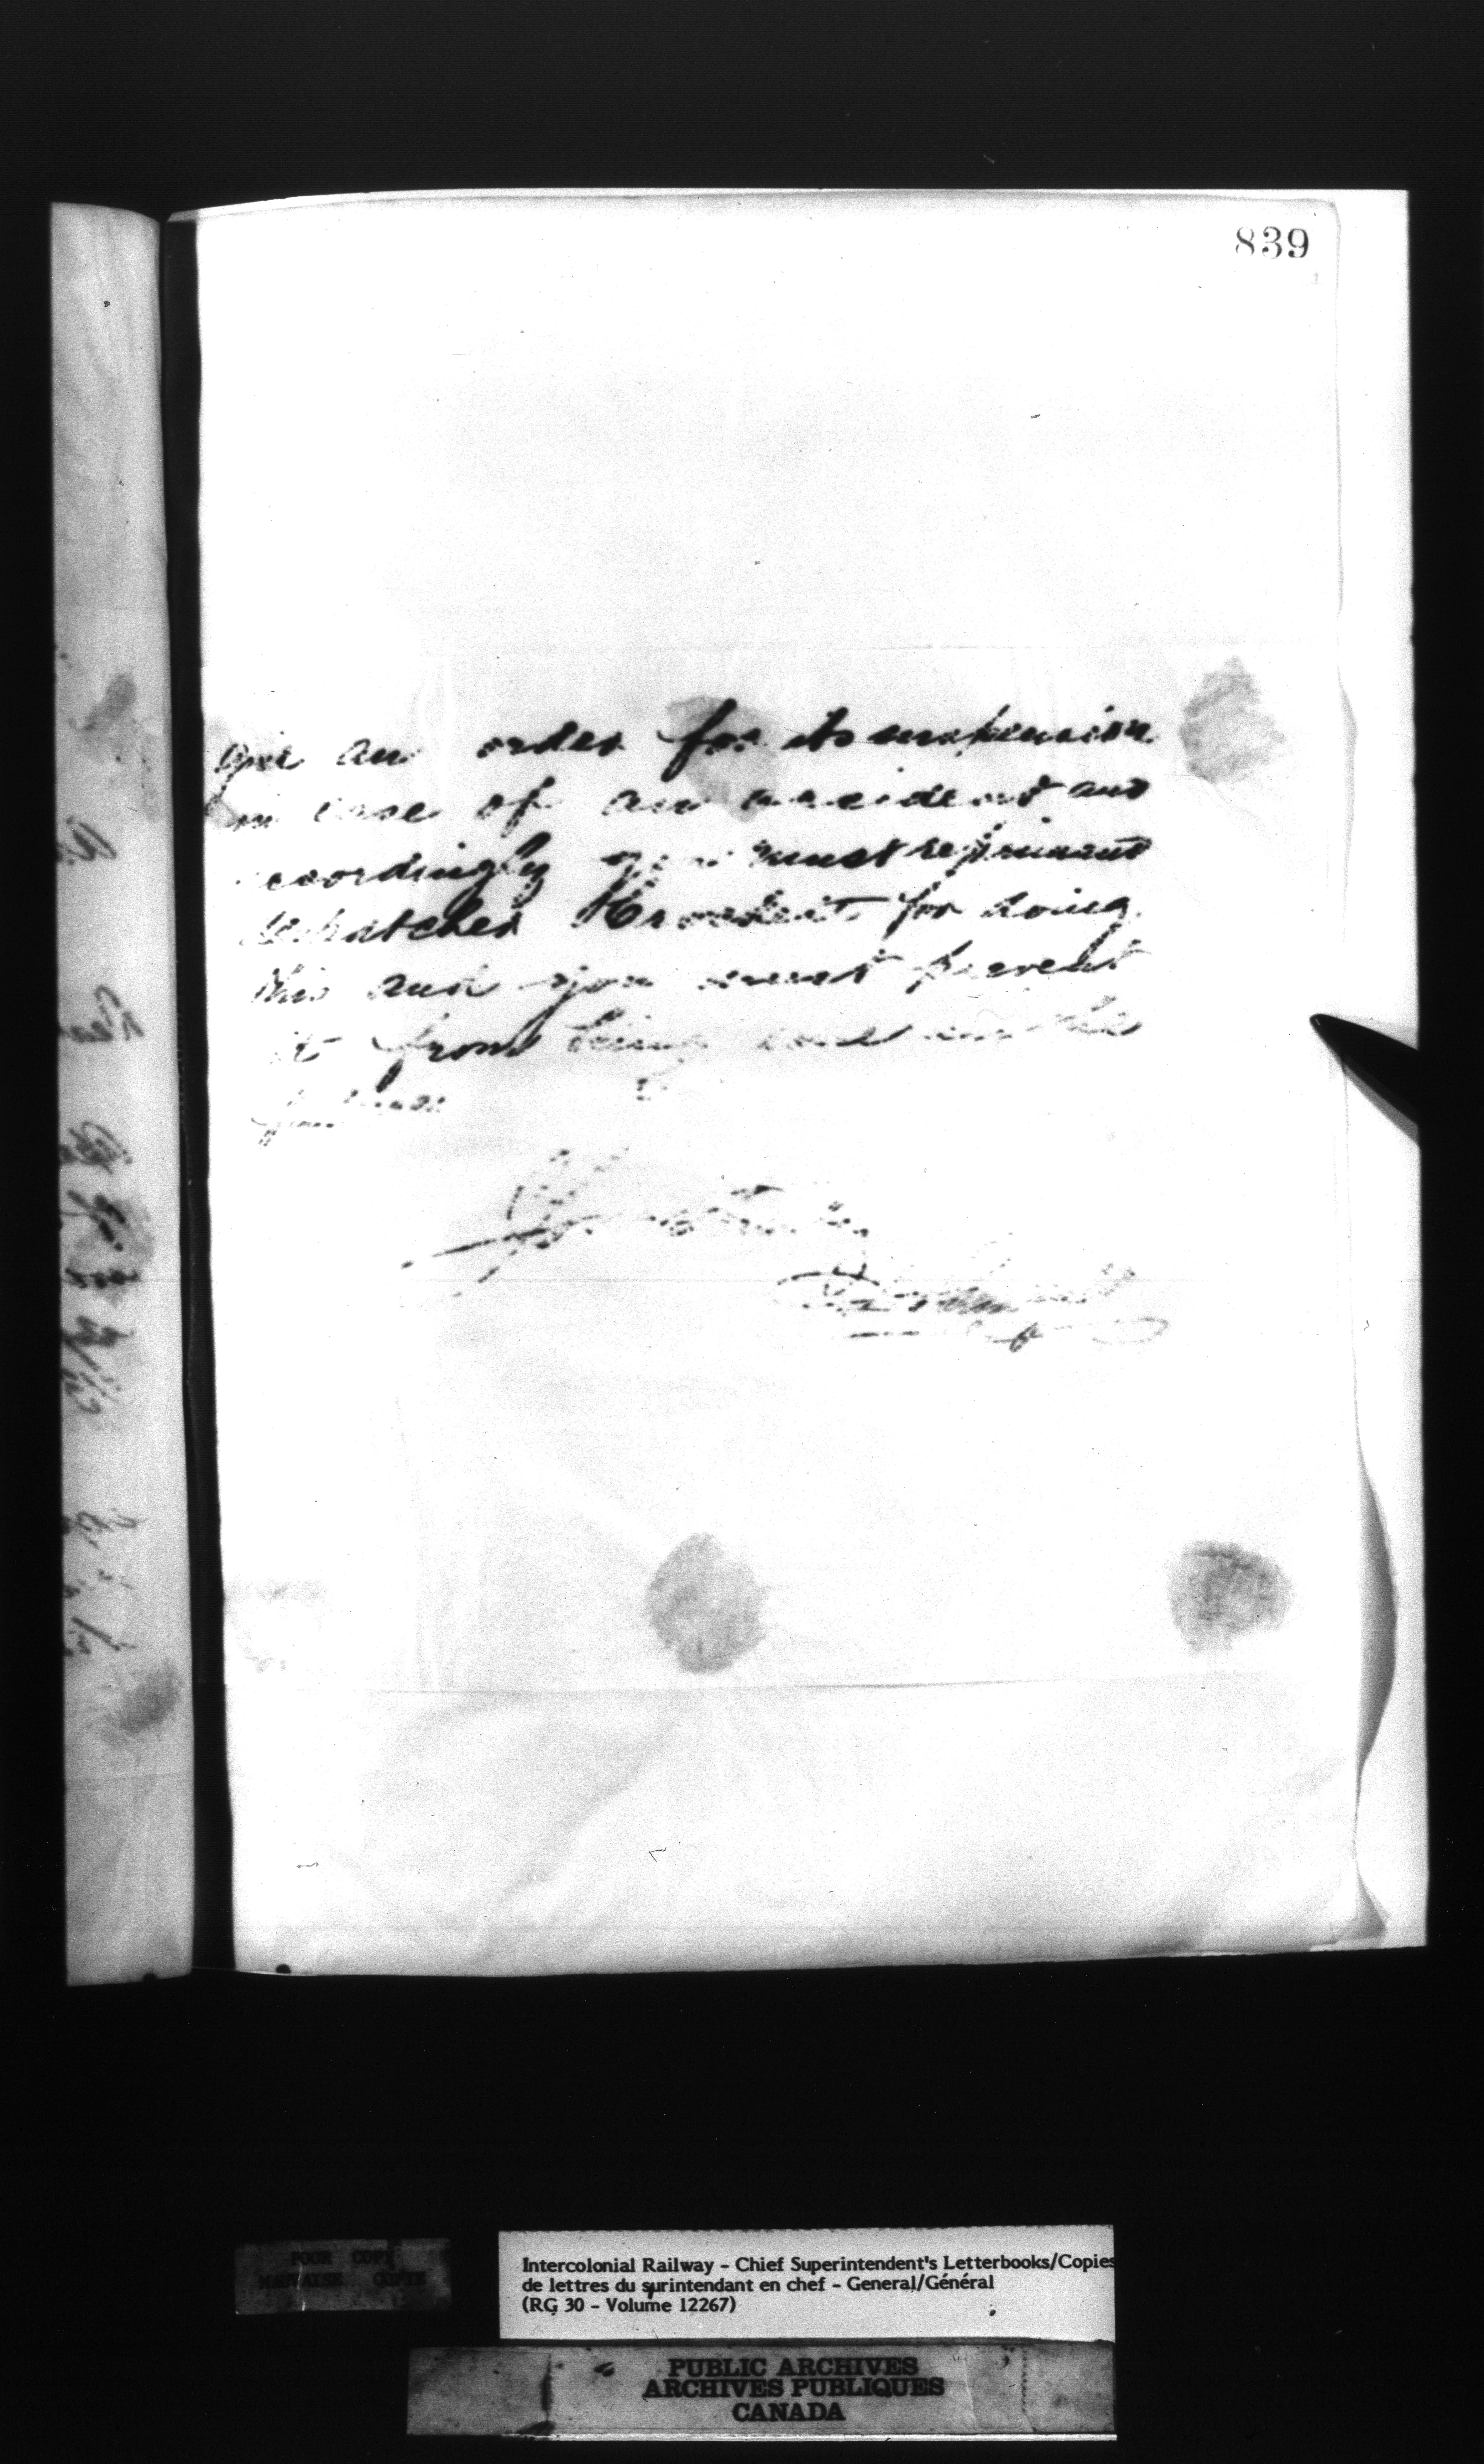 839
give an order for its suspension
in case of an accident and
accordingly you must reprimand
despatcher for doing
this and you must prevent
it from being done in the
future
Yours Truly
POOR COPY
MAUVAISE COPIE
Intercolonial Railway - Chief Superintendent's Letterbooks/Copies
de lettres du surintendant en chef - General/Général
(RG 30 - Volume 12267)
PUBLIC ARCHIVES
ARCHIVES PUBLIQUES
CANADA